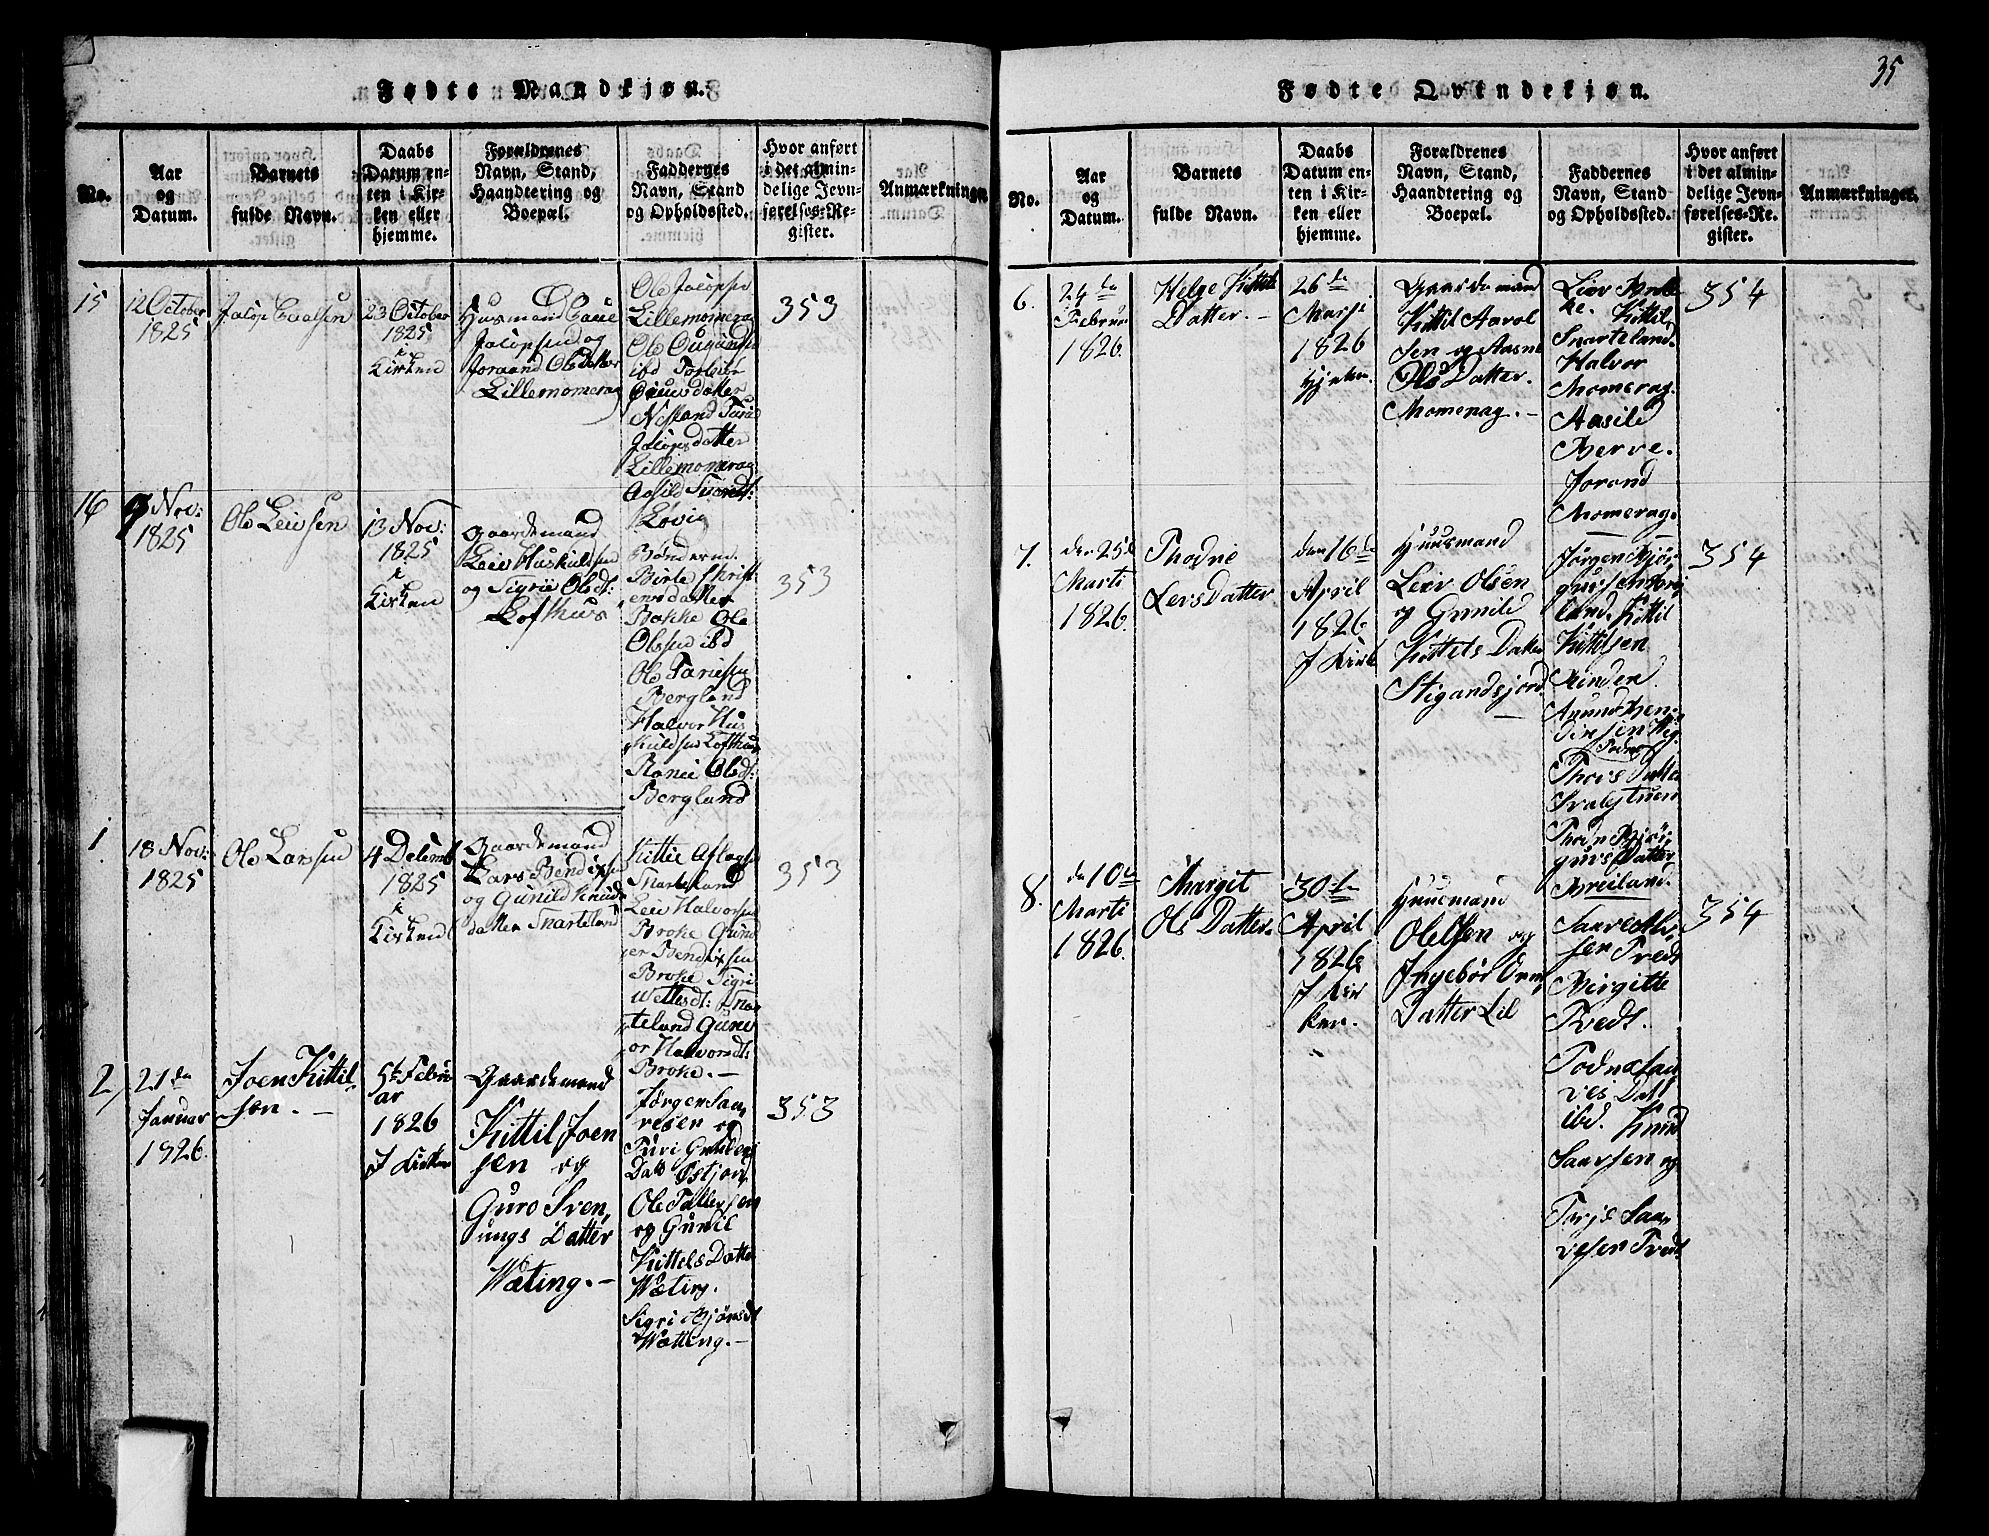 Fødte Mandkjøn.
No.
Aar
og
Datum.
Barnets
fulde Navn.
Daabs
Datum en-
ten i Kir-
ken eller
hjemme.
Forældrenes
Navn, Stand,
Haandtering og
Boepæl.
Faddernes
Navn, Stand
og Opholdssted.
Hvor anført
i det almin-
delige Jevn-
førelses-Re-
gister.
Anmærkninger.
15
12 October
1825
23 October
1825
i
Kirken
Husmand
Jacopsen og
Joraand Olsdatter
Lillemomerag
Ole Jacopsen
Lillemomerag
Ole
ibd
datter
Nesland
Jacopsdatter
Lillemomerag
353
16
9 Nov:
1825
Ole Leivsen
13 Nov:
1825
i
Kirken
Gaardemand
Leiv Huskuldsen
og Sigrie Olsdt:
Lofthuus
Aasild
Løvig
Bønderne
datter
Bakke Ole
Olssen ibd
Ole
Bergland
Halvor Hus
kuldsen Lofthuus
Ranei Olsdt:
Bergland
353
1
18 Nov:
1825
Ole Larsen
4 Decemb
1825
i
Kirken
Gaardemand
Lars Bendixsen
og Gunild Knuds
datter Snarteland
Kittil Aslags
Snarteland
Leiv Halvorsen
Broke Gund
er Bendixsen
Broke Sigri
Snar
teland Gune
or Halvorsdt:
Broke. –
353
2
21de
Januar
1826.
Joen Kittil
sen. –
5te Febru
ar
1826
I Kirken
Gaardemand
Kittil Joen
sen og
Guro Sven,
ungs Datter
Wæting. –
Jørgen Saa,
vesen og
Turi
Datt
Ole Tallefsen
og Gunil
Kittels Datter
Wæting.
Sigri Bjørnsdt
Wætting. –
353
35
Fødte Qvindekjøn.
No.
Aar
og
Datum.
Barnets
fulde Navn.
Daabs
Datum en-
ten i Kir-
ken eller
hjemme.
Forældrenes
Navn, Stand,
Haandtering og
Boepæl.
Faddernes
Navn, Stand
og Opholdssted.
Hvor anført
i det almin-
delige Jevn-
førelses-Re-
gister.
Anmærkninger.
6.
24de
Februar
1826.
Helge Kittils
Datter. –
26de
Marsi
1826
Gaardemand
Kittil Aavol
sen og Aasne
Ols Datter.
Momerag. –
Leiv
Kittil
Snarteland.
Halvor
Momerag.
Aasild
Berve.
Jorand
Momerag.
354
7.
den 25de
Marti
1826.
Thodne
Levs Datter
den 16de
April
1826
I Kirk
Huusmand
Leiv Olsen
og Gunild
Kittels Datter
Stigandsjord
–
Jørgen Bjør
gufsen
land. Kittil
Kittilsen
Rinden
Amund
Thors Datter
Thodn Bjør
gufs Datter
Breiland.
354
8.
den 10de
Marti
1826.
Margit
Ols Datter.
30de
April
1826
I Kir
ken.
Huusmand
Ole
og
Ingebor
Datter Lil
Saave
sen Tvedt
Birgitte
Tvedt.
Todne Saa
ves Datt
ibd. Knud
Saavsen og
Tarje Saa,
vesen Tvedt
354